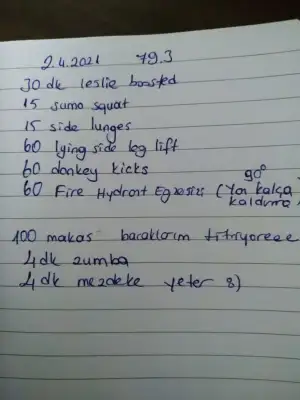 2.4.2021 79.3
30 dk leslie boosted
15 sumo squat
15 side lunges
60 lying side leg lift
60 donkey kicks
90°
60 Fire Hydrant Egzersizi (Yan kalça kaldırma)
100 makas bacaklarım titriyoreee
4 dk zumba
4 dk mezdeke yeter 8)